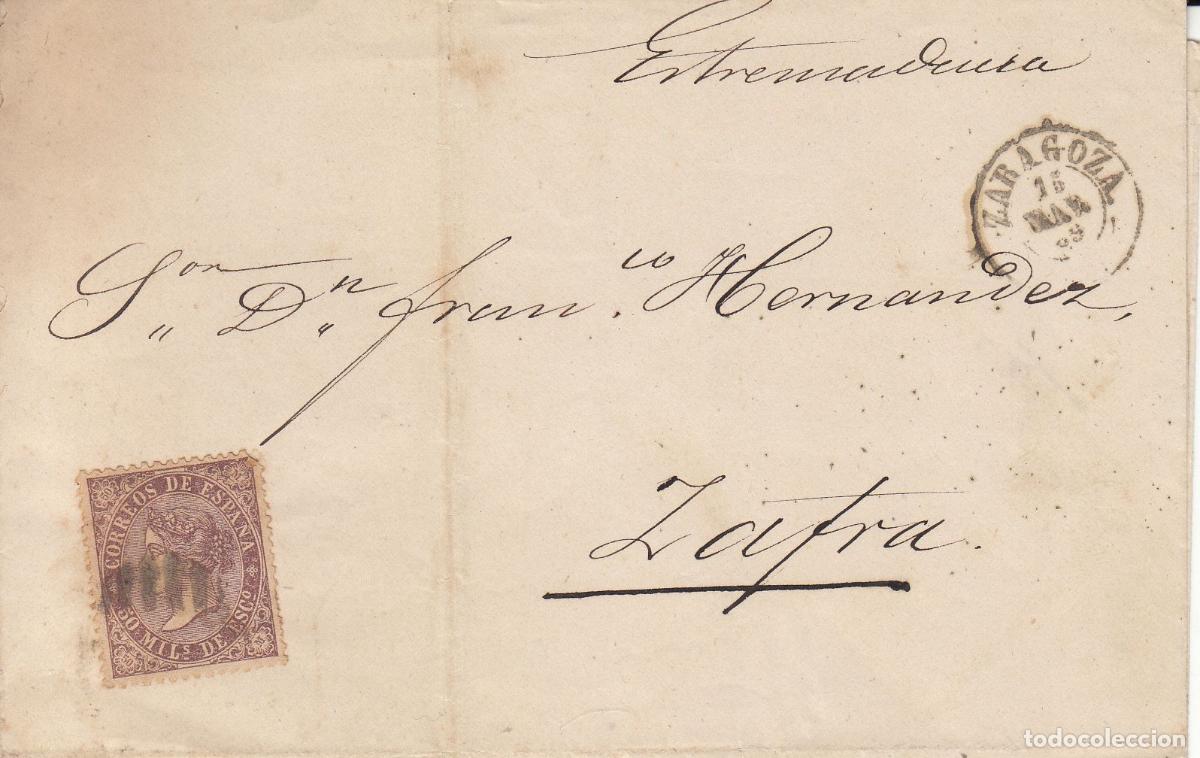 Estremadura
ZARAGOZA
15
MAR
Sor Dn Franco Hernandez,
Zafra.
CORREOS DE ESPAÑA
50 MILS. DE ESCO.
todocoleccion